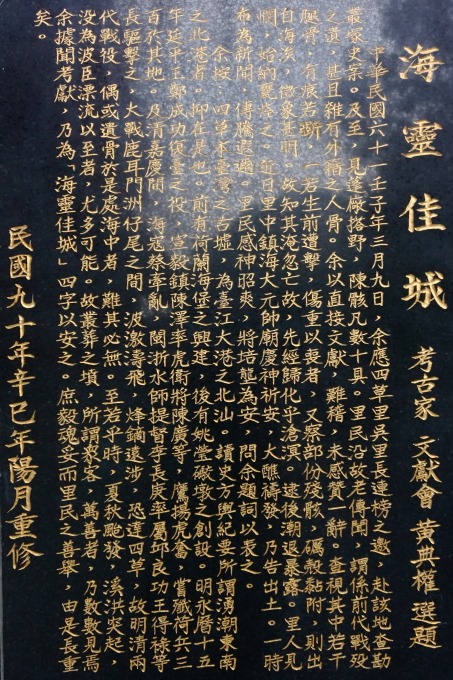 海靈佳城
考古家 文獻會 黃典權 選題
中華民國六十一壬子年三月九日，余應四草里吳里長連榜之邀，赴該地查勘
叢塚史案。及至，見蓬廠搭野，陳骸凡數十具。里民沿故老傳聞，謂係前代戰歿
之遺，甚且雜有外籍之人骨。余以直接文獻，難稽，未感贊一辭。查視其中若干
腿骨，有痕若斷，一若生前遭擊，傷重以喪者，又察部份殘骸，礪殼黏附，則出
自海涘，徵象甚明。故知其淹忽亡故，先經歸化乎滄溟。逮後潮退暴露。里人見
憫，始納甕瘞之。近日里中鎮海大元帥廟慶神祈安，大醮禱發，乃告出土。一時
布為新聞，傳騰遐邇。里民感神昭爽，將培壟為安，問余題詞以表之。
余按，四草本臺灣之古墟，為臺江大港之北汕。讀史方輿紀要所謂湧潮東南
之北港者。抑在是也。前有荷蘭海堡之興建，後有姚瑩礮墩之創設。明永曆十五
年延平王鄭成功復臺之役，宣毅鎮陳澤率虎衛將陳廣等，鷹揚虎奮，嘗殲荷兵三
百於其地。及清嘉慶間，海寇蔡牽亂，閩浙水師提督李長庚率屬邱良功王得祿等
長驅擊之，大戰鹿耳門洲仔尾之間，波激濤飛，烽鏑遠涉，恐達四草，故明清兩
代戰役，偶或遺骨於是處海中者，難其必無。至若乎時，夏秋颱發，溪洪突起，
沒為波臣漂流以至者，尤多可能。故叢葬之墳，所謂眾客，萬善者，乃數數見焉
余據聞考獻，乃為「海靈佳城」四字以安之。庶毅魂妥而里民之善舉，由是長重
矣。
民國九十年辛巳年陽月重修